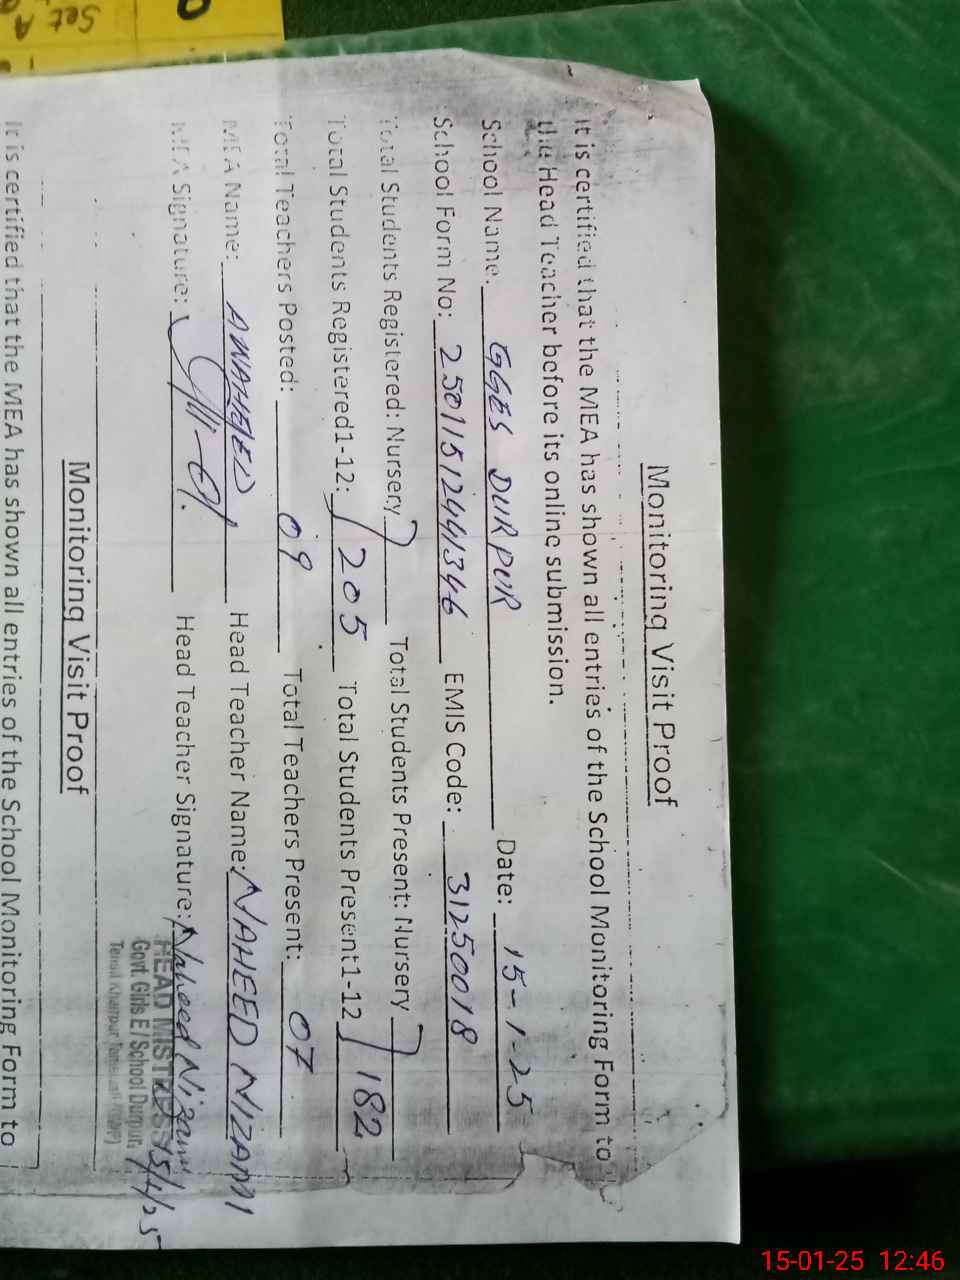 Monitoring Visit Proof
It is certified that the MEA has shown all entries of the School Monitoring Form to
the Head Teacher before its online submission.
School Name: GGES DURPUR Date: 15-1-25
School Form No: 25011512441346 EMIS Code: 31250018
Total Students Registered: Nursery Total Students Present: Nursery
Total Students Registered1-12: 205 Total Students Present1-12 182
Total Teachers Posted: 09 Total Teachers Present: 07
MEA Name: Head Teacher Name: NAHEED NIZAMI
MEA Signature: Head Teacher Signature: Naheed Nizami
HEAD MISTRESS 15/1/25
Govt. Girls E/School Durpur
Tehsil Khanpur
Monitoring Visit Proof
It is certified that the MEA has shown all entries of the School Monitoring Form to
Set A
15-01-25 12:46